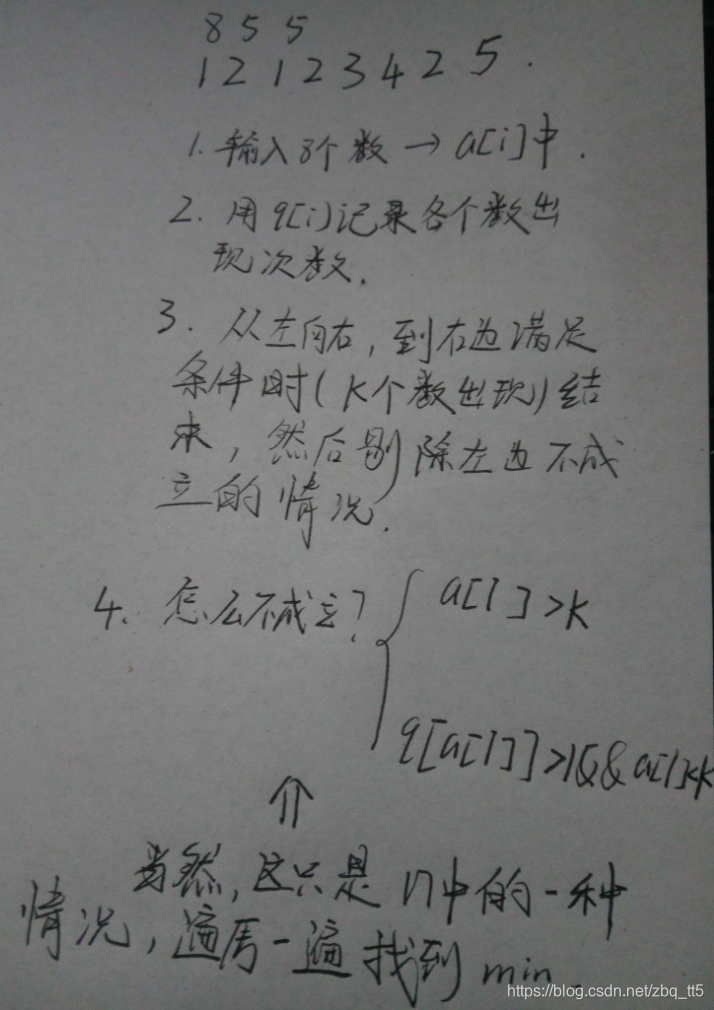 8 5 5
1 2 1 2 3 4 2 5 .
1. 输入8个数 → a[i]中.
2. 用q[i]记录各个数出
现次数.
3. 从左向右, 到右边满足
条件时(K个数出现)结
束, 然后剔除左边不成
立的情况.
4. 怎么不成立? { a[l]>K
q[a[l]]>1&&a[l]<K
⇑
当然, 这只是 n中的一种
情况, 遍历一遍找到 min.
https://blog.csdn.net/zbq_tt5